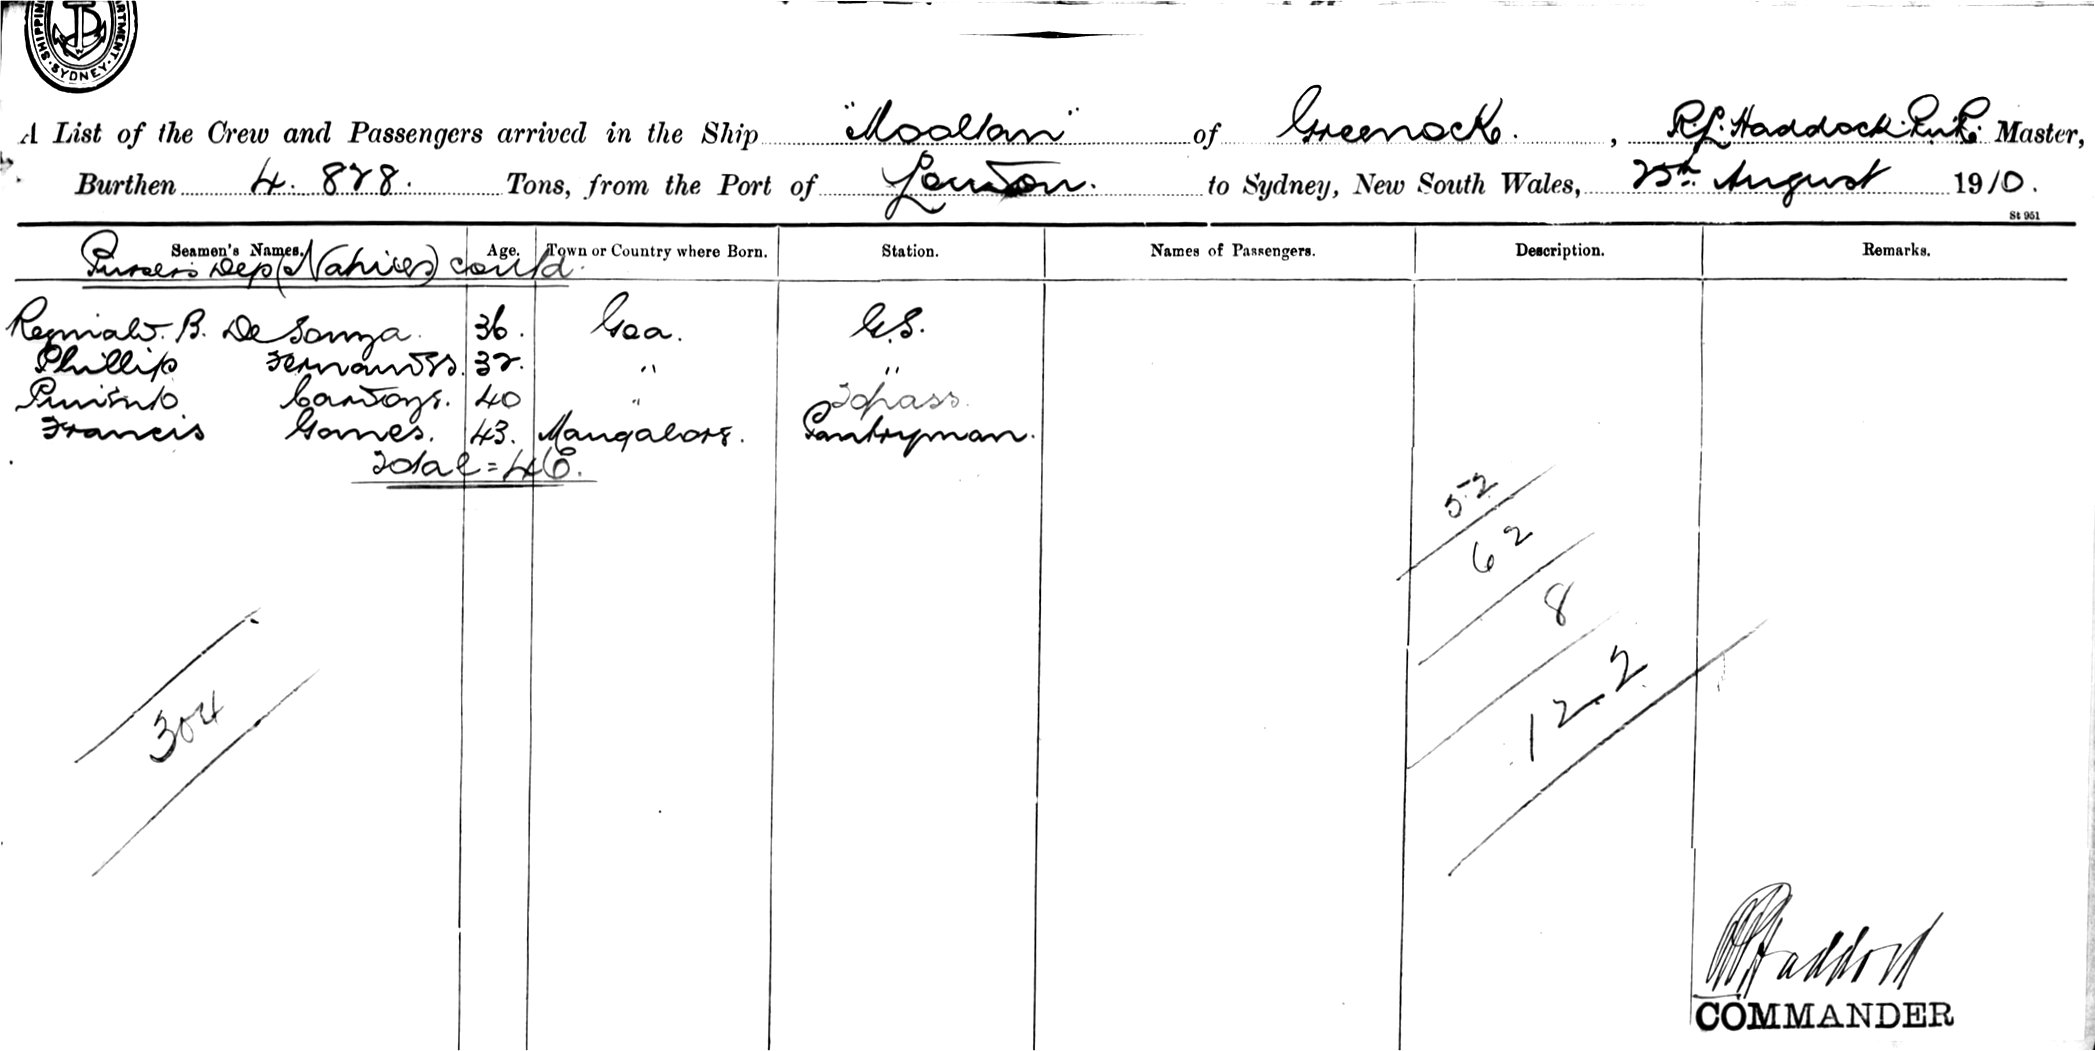 SHIPPING DEPARTMENT SYDNEY
A List of the Crew and Passengers arrived in the Ship "Mooltan" of Greenock. , R.L. Haddock. R.N.R. Master,
Burthen 4.828. Tons, from the Port of London. to Sydney, New South Wales, 25th August 1910.
St 951
Seamen's Names. Age. Town or Country where Born. Station. Names of Passengers. Description. Remarks.
Pursers Dep (Natives) contd.
Reginald. B. De Souza. 36. Goa. G.S.
Phillip Fernandes. 32. " "
Cardoza. 40 " Topass.
Francis Gomes. 43. Mangalore. Pantryman.
Total = 46.
52
62
8
122
304
Haddock
COMMANDER